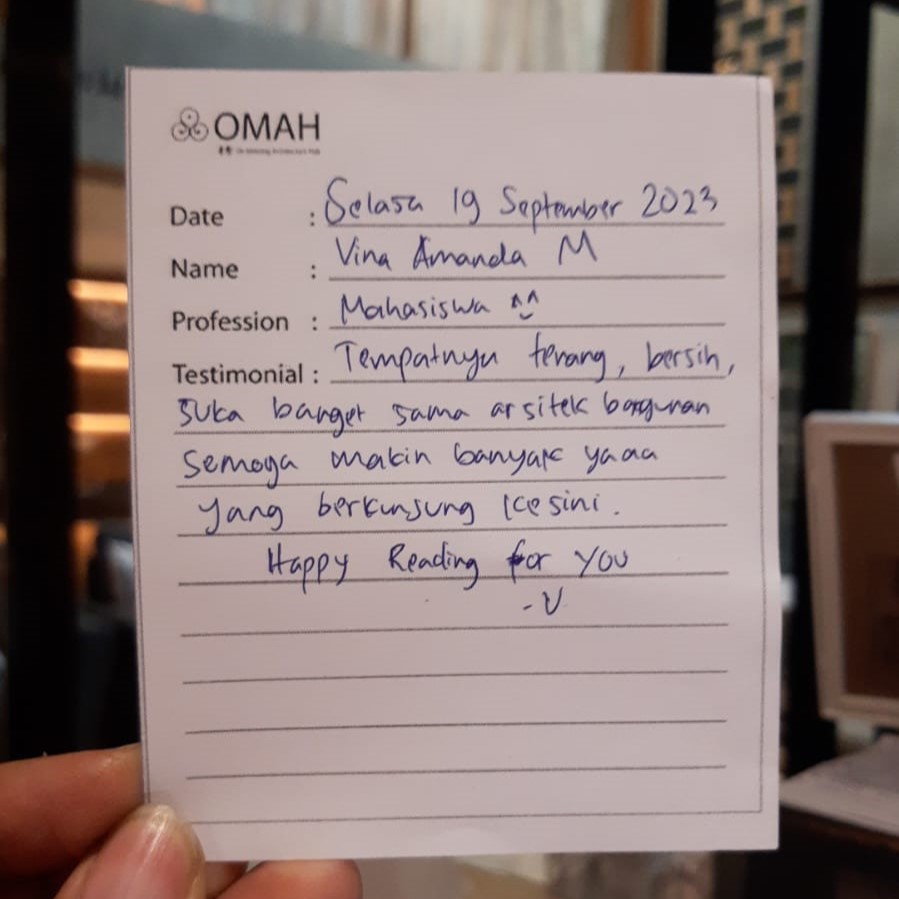 OMAH
Date : Selasa 19 September 2023
Name : Vina Amanda M
Profession : Mahasiswa ^^
Testimonial : Tempatnya terang, bersih,
suka banget sama arsitek bangunan
Semoga makin banyak yaaa
yang berkunjung kesini.
Happy Reading for you
-V